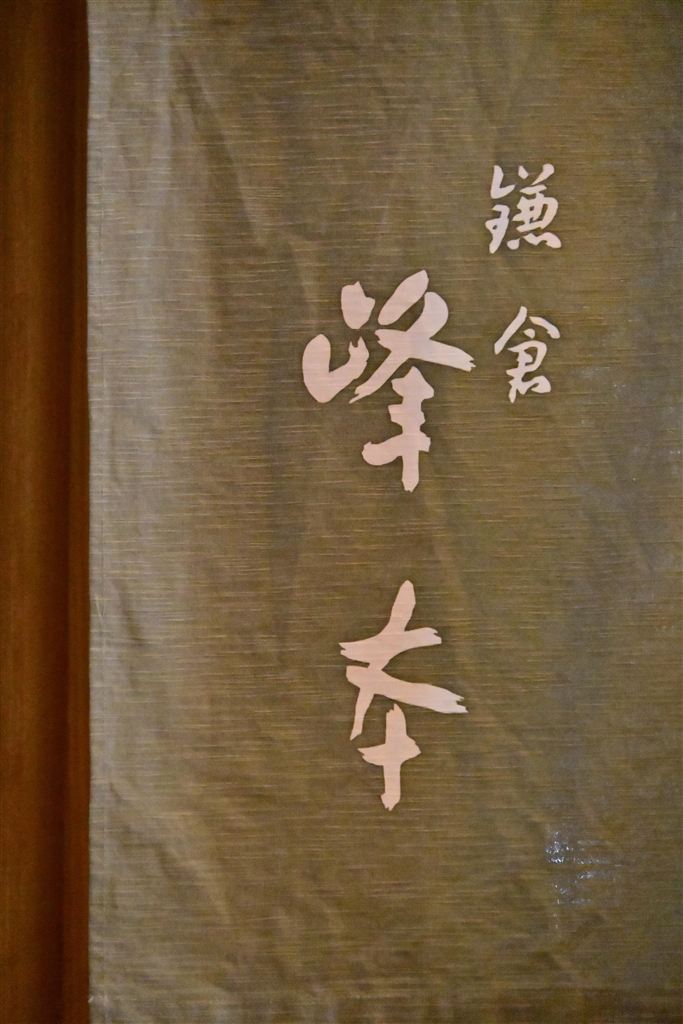 鎌倉
峰本